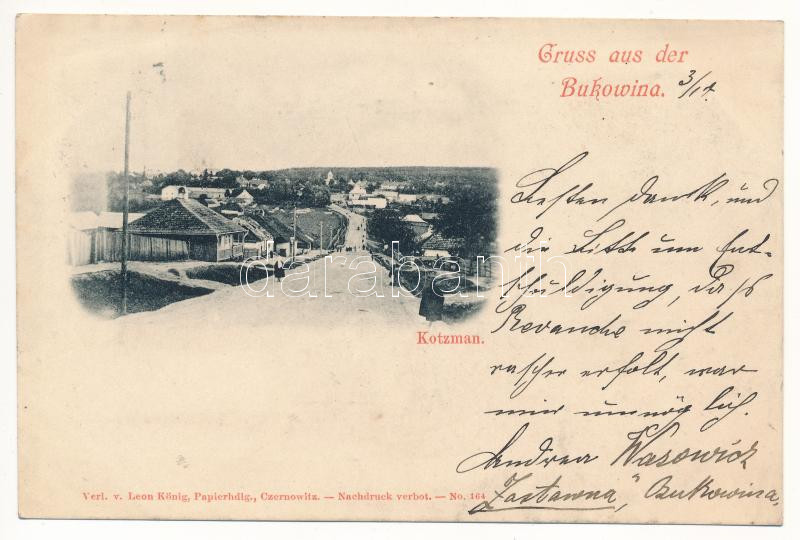 Gruss aus der
Bukowina. 3/11.
Besten Dank, und
die Bitte um Ent-
schuldigung, dass
Revanche nicht
rascher erfolt, war
mir unmöglich.
Andrea Wasowicz
Zastawna, Bukowina,
Kotzman.
Verl. v. Leon König, Papierhdlg., Czernowitz. — Nachdruck verbot. — No. 164
darabanth.com